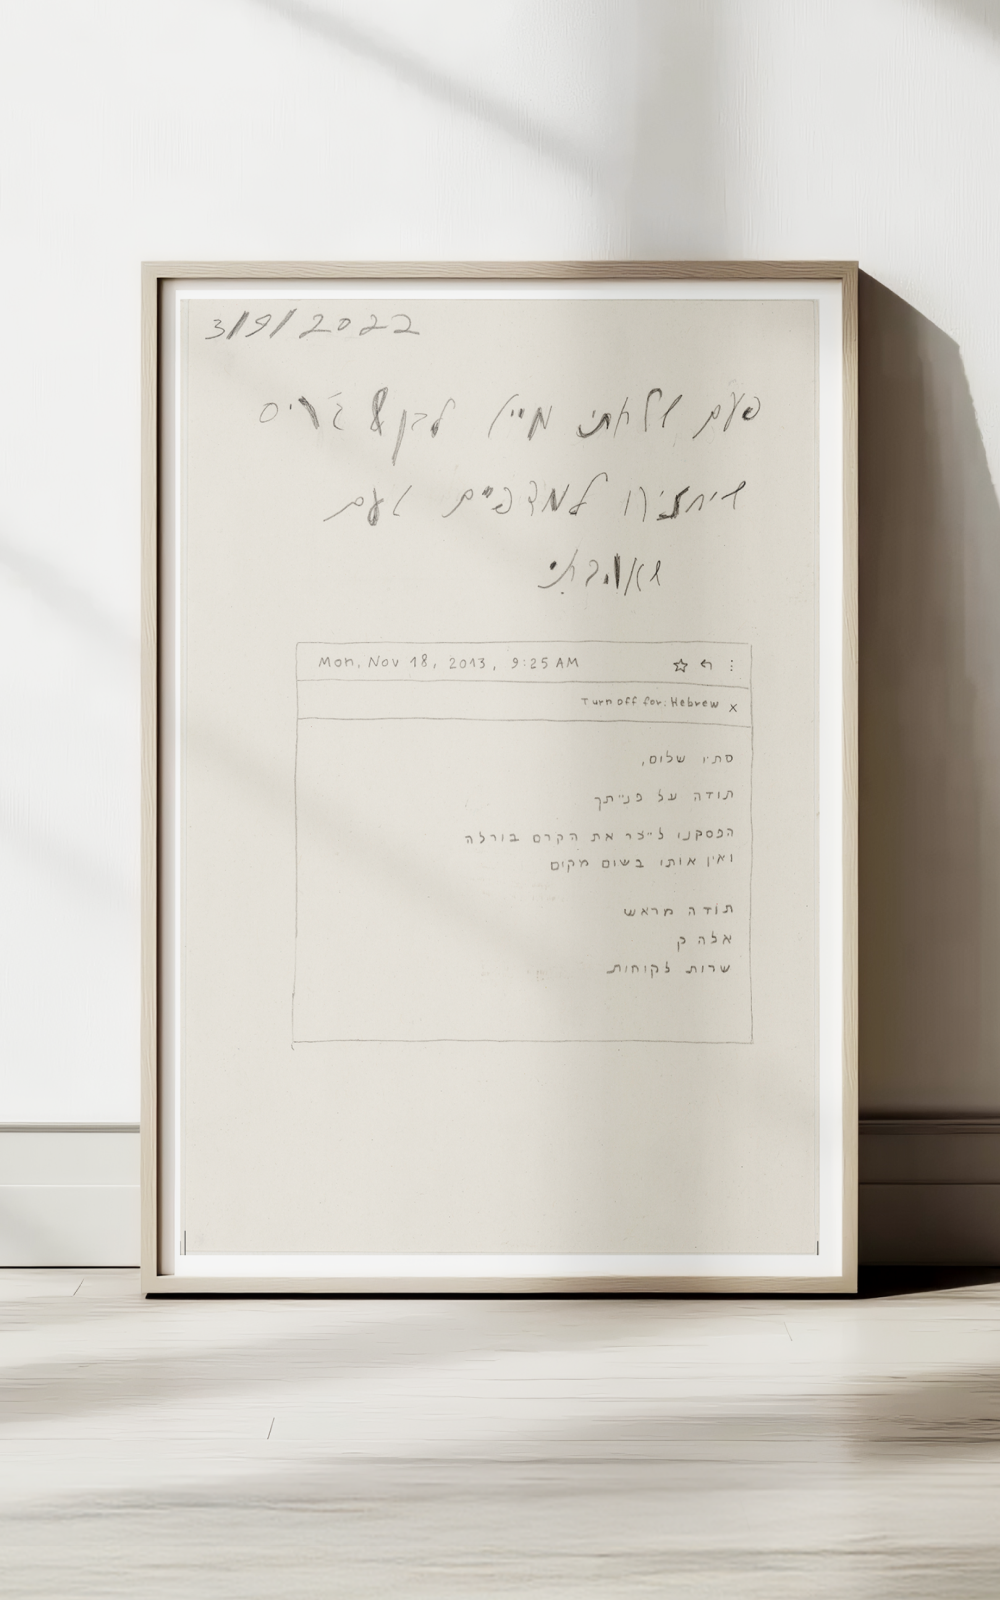 3/9/2022
פעם שלחתי מייל לבן & ג'ריס
שיחזירו למדפים טעם
שאהבתי
Mon, Nov 18, 2013, 9:25 AM
Turn off for: Hebrew x
סתיו שלום,
תודה על פנייתך
הפסקנו לייצר את הקרם בורלה
ואין אותו בשום מקום
תודה מראש
אלה ק
שרות לקוחות